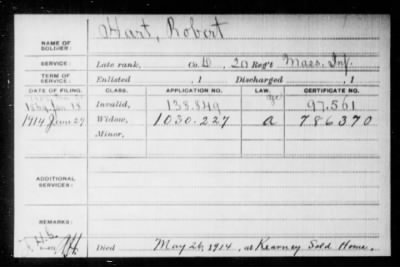 Hart, Robert
NAME OF SOLDIER:
SERVICE: Late rank, Co. D, 20 Reg't Mass. Inf.
TERM OF SERVICE: Enlisted , 1 Discharged , 1
DATE OF FILING. CLASS. APPLICATION NO. LAW. CERTIFICATE NO.
Invalid, 138.849 97.561
1914 June 27 Widow, 1030.227 a 786370
Minor,
ADDITIONAL SERVICES:
REMARKS:
Died May 26, 1914, at Kearney Sold Home.